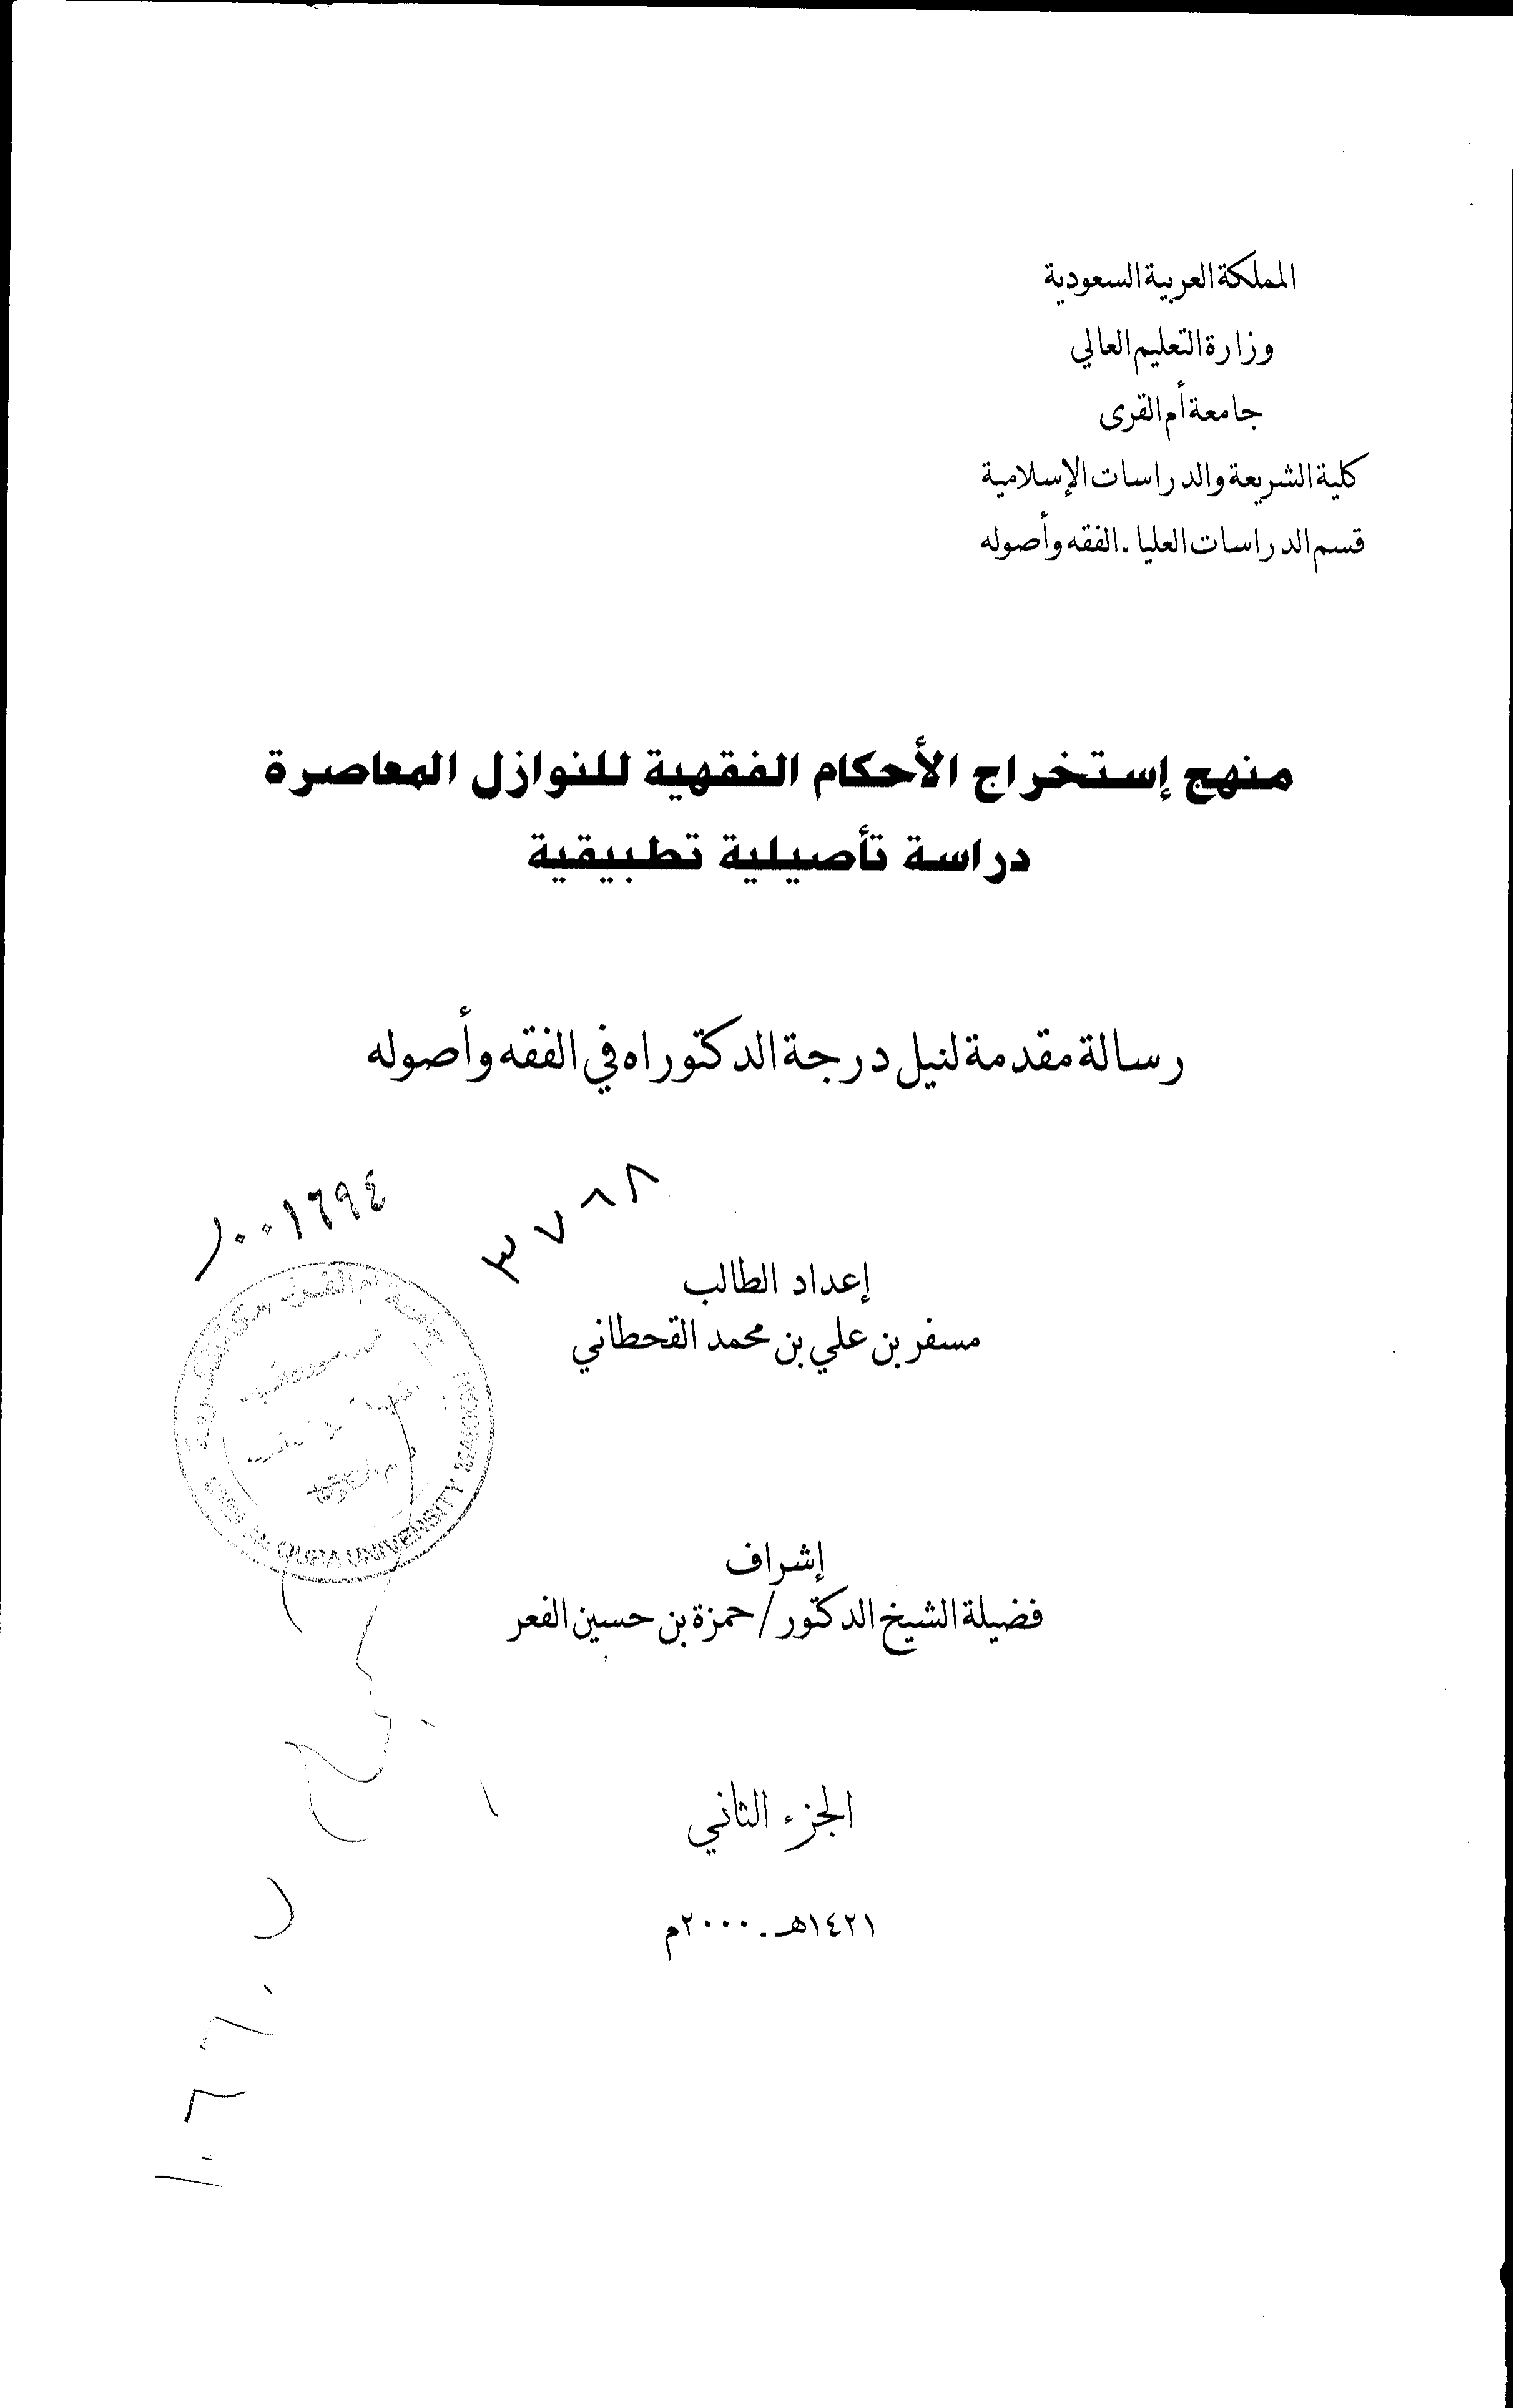 المملكة العربية السعودية
وزارة التعليم العالي
جامعة أم القرى
كلية الشريعة والدراسات الإسلامية
قسم الدراسات العليا . الفقه وأصوله
منهج إستخراج الأحكام الفقهية للنوازل المعاصرة
دراسة تأصيلية تطبيقية
رسالة مقدمة لنيل درجة الدكتوراه في الفقه وأصوله
٣٧٨٨
٠٠١٦٩٤
إعداد الطالب
مسفر بن علي بن محمد القحطاني
جامعة أم القرى
UMM AL-QURA UNIVERSITY MAKKAH
إشراف
فضيلة الشيخ الدكتور / حمزة بن حسين الفعر
الجزء الثاني
١٤٢١هـ . ٢٠٠٠م